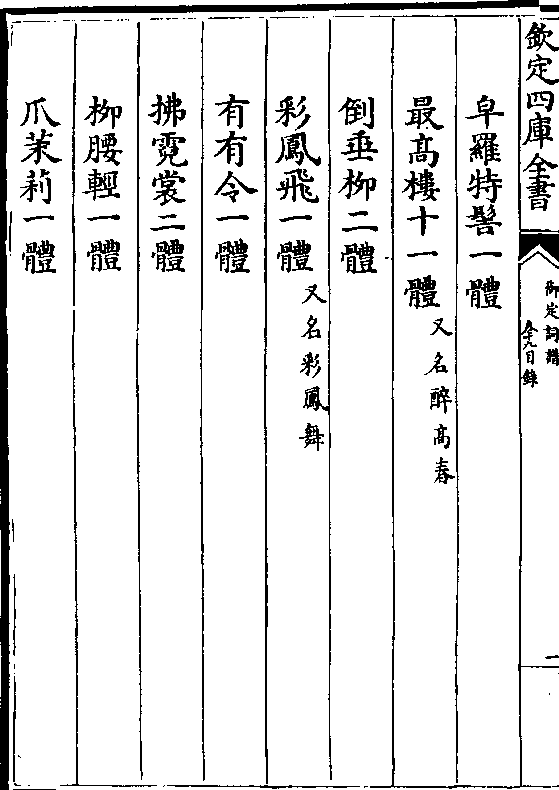 欽定四庫全書
御定詞譜
卷十九目錄
一
皁羅特髻一體
最高樓十一體 又名醉高春
倒垂柳二體
彩鳳飛一體 又名彩鳳舞
有有令一體
拂霓裳二體
柳腰輕一體
爪茉莉一體